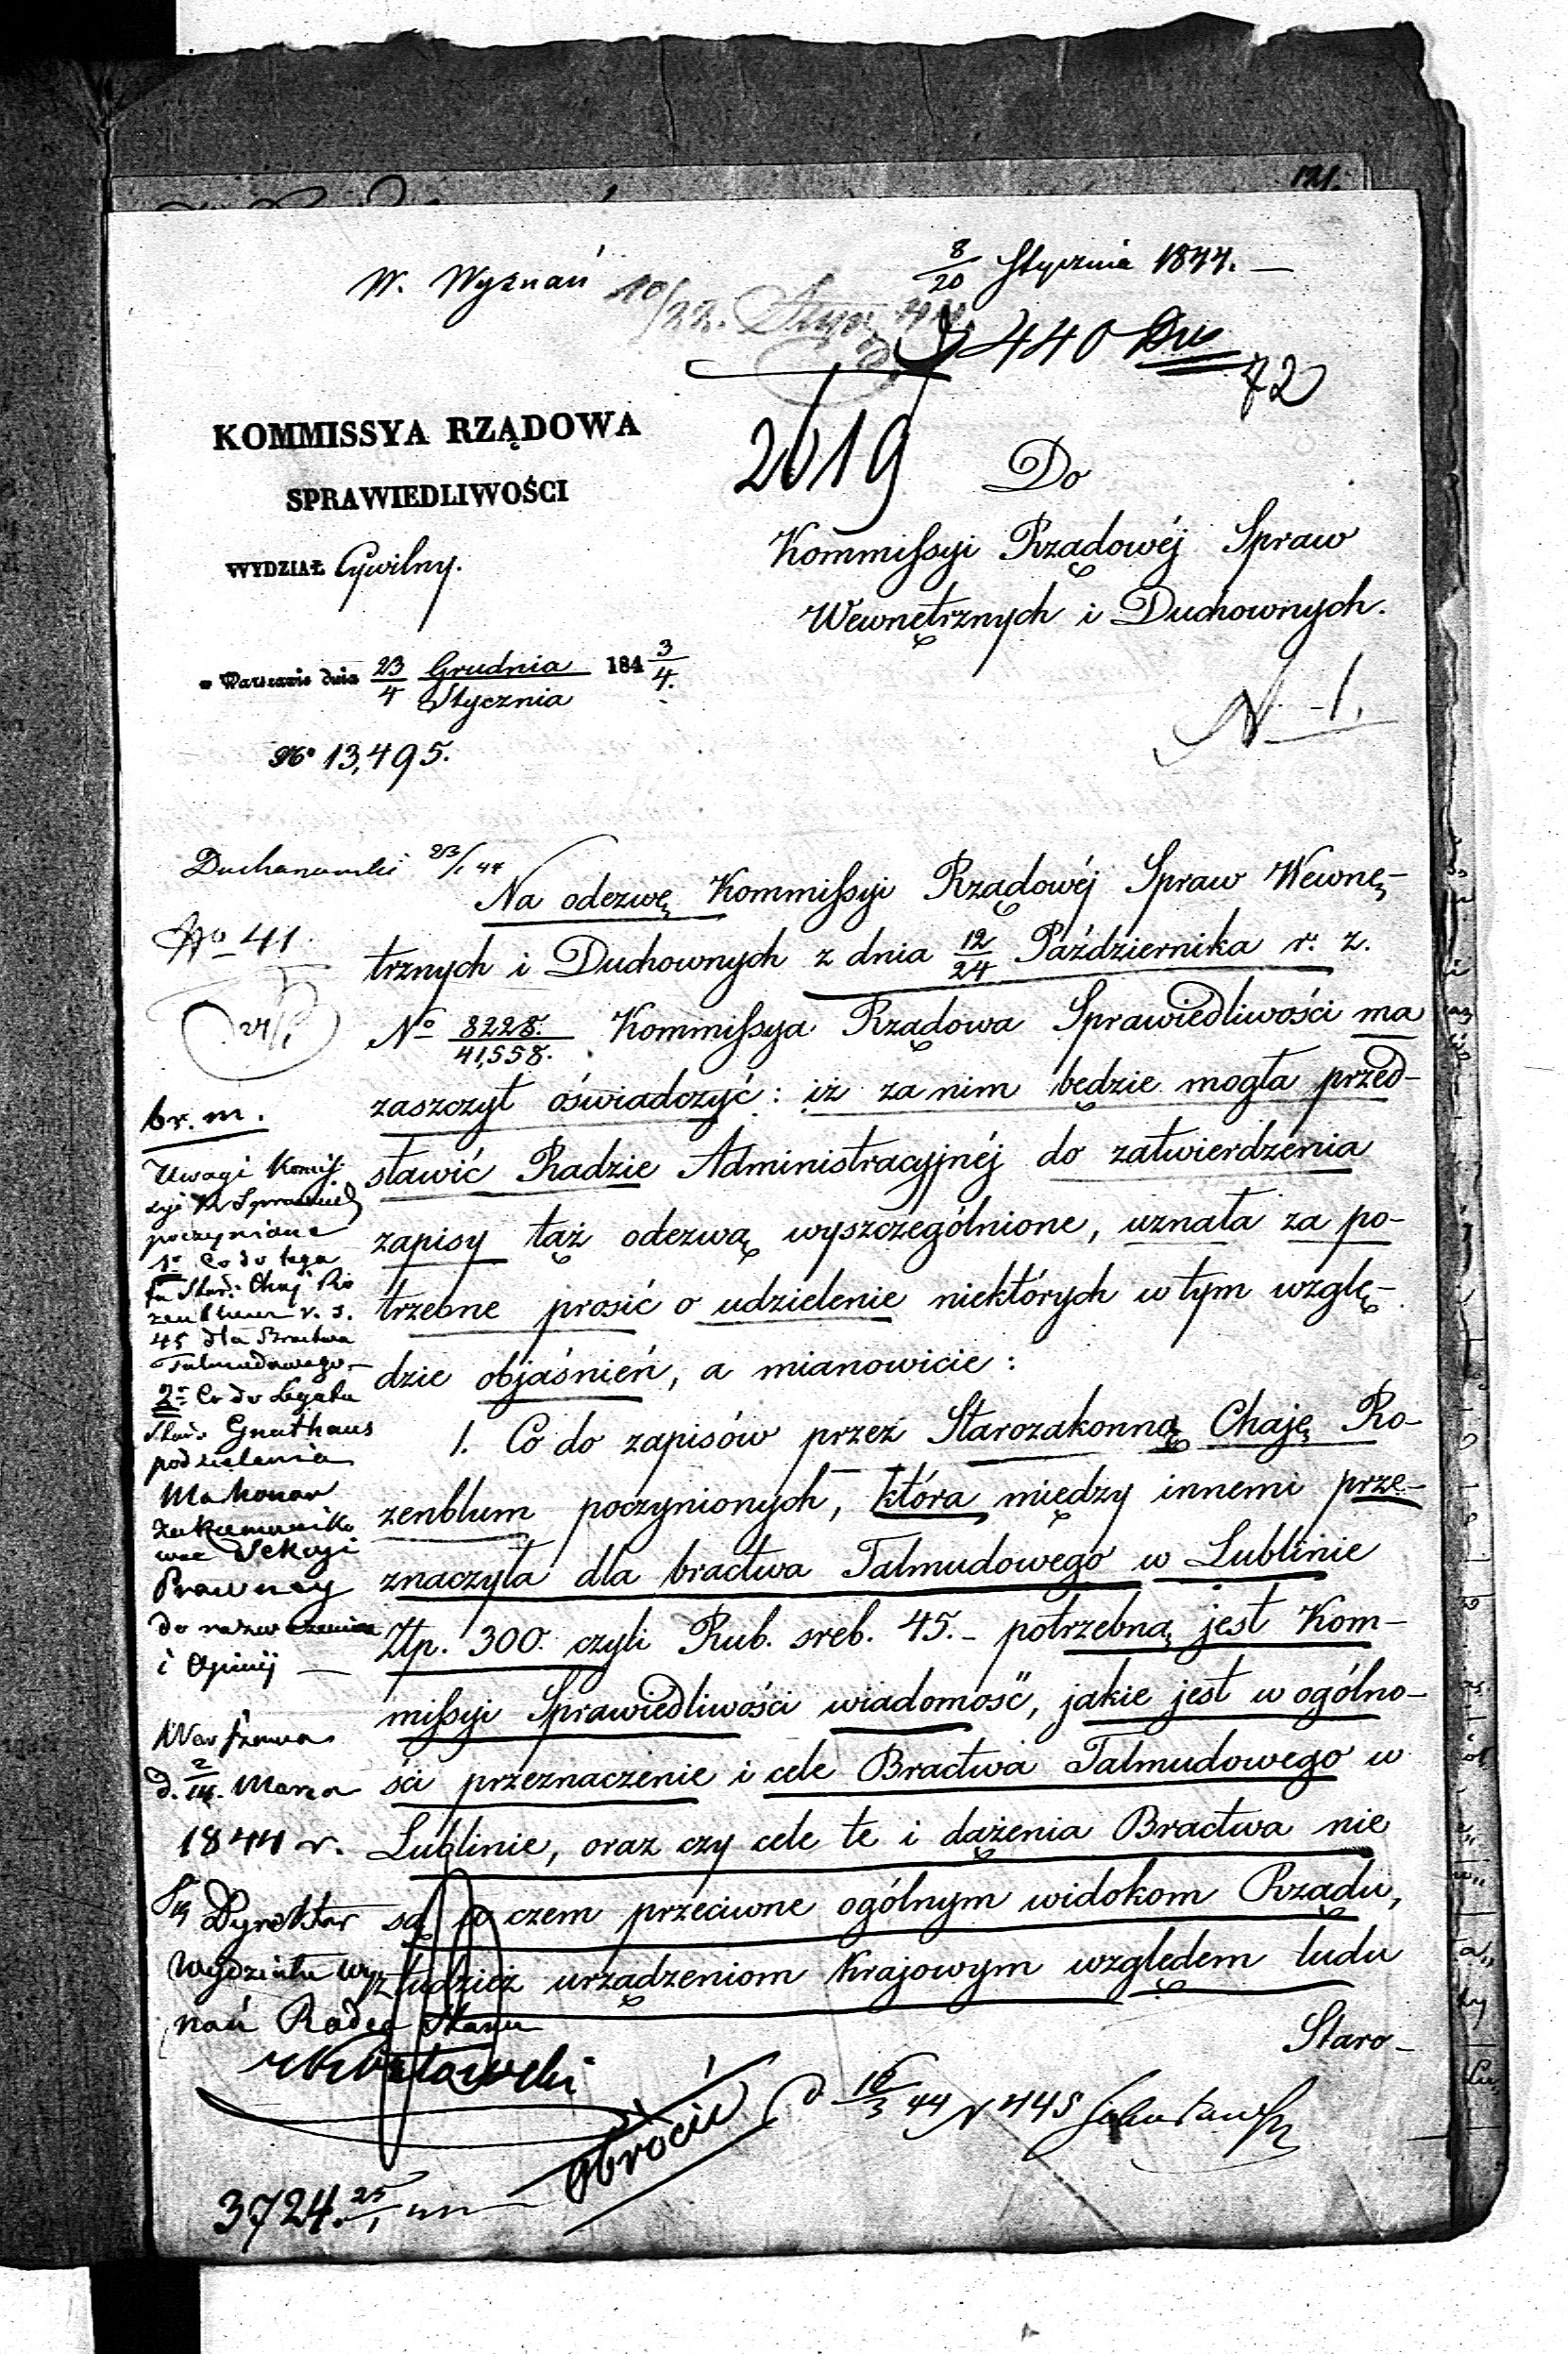 121.
W. Wyznań
8/20 Stycznia 1844.
10/22. Stycz 44
440
72
2019
KOMMISSYA RZĄDOWA
SPRAWIEDLIWOŚCI
WYDZIAŁ Cywilny.
w Warszawie dnia 23/4 Grudnia/Stycznia 184 3/4.
No 13,495.
Do
Kommissyi Rządowéj Spraw
Wewnętrznych i Duchownych.
N 1.
23/1 44
No 41
br. m.
Uwagi Komis-
syi R Sprawied
poczynione
1o Co do lega
tu Star: Chaj Ro
zenblum r. s.
45 dla Bractwa
Talmudowego
2o Co do Legatu
Star. Gnathaus
podzielenia
zakommuniko
wać Sekcyi
Prawney
i Opinij
Warszawa
d. Marca
1844 r.
Dyrektor
Wydziału Wyz
nań Radca Stanu
Na odezwę Kommissyi Rządowéj Spraw Wewnę-
trznych i Duchownych z dnia 12/24 Października r. z.
No 8228./41,558. Kommissya Rządowa Sprawiedliwości ma
zaszczyt oświadczyć: iż za nim będzie mogła przed-
stawić Radzie Administracyjnéj do zatwierdzenia
zapisy tąż odezwą wyszczególnione, uznała za po-
trzebne prosić o udzielenie niektórych w tym wzglę-
dzie objaśnień, a mianowicie:
1. Co do zapisów przez Starozakonną Chaję Ro-
zenblum poczynionych, która między innemi prze-
znaczyła dla bractwa Talmudowego w Lublinie
Złp. 300. czyli Rub. sreb. 45.- potrzebną jest Kom-
missyi Sprawiedliwości wiadomość, jakie jest w ogólno-
ści przeznaczenie i cele Bractwa Talmudowego w
Lublinie, oraz czy cele te i dążenia Bractwa nie
są w czem przeciwne ogólnym widokom Rządu,
tudzież urządzeniom krajowym względem ludu
Staro-
obrócić
16/3 44 N 445
3724. 25/1